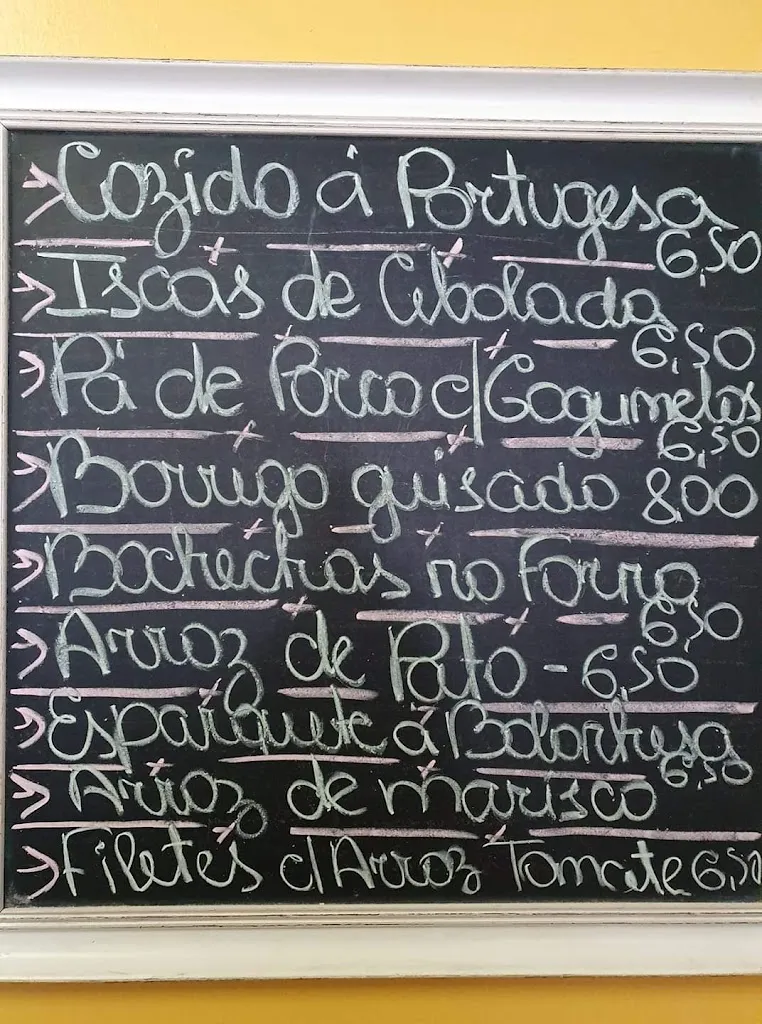 Cozido á Portugesa
6,50
Iscas de Cebolada
6,50
Pá de Porco c/Cogumelos
6,50
Borrego guisado 8,00
Bochechas no Forno
6,50
Arroz de Pato - 6,50
Esparguete á Bolonhesa
6,50
Arroz de marisco
Filetes c/Arroz Tomate 6,50